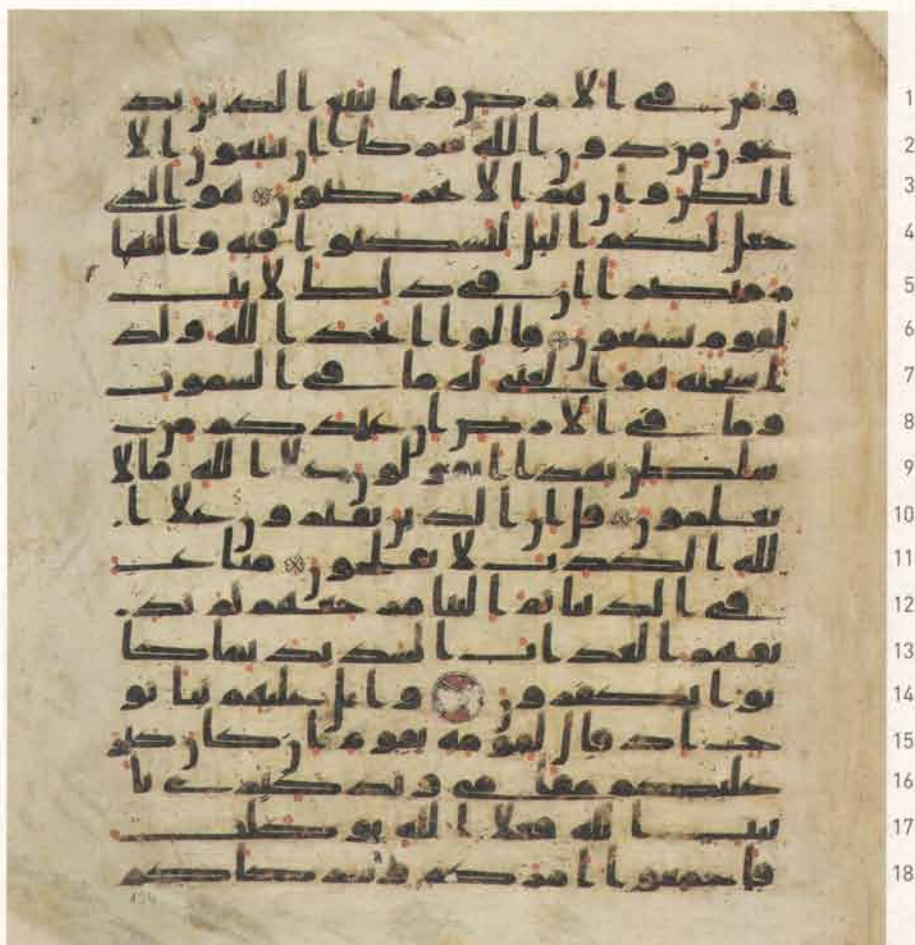 ومن في الارض وما يتبع الذين يد 1
عون من دون الله شركا ان يتبعون الا 2
الظن وان هم الا يخرصون هو الذي 3
جعل لكم اليل لتسكنوا فيه والنها 4
ر مبصرا ان في ذلك لايت 5
لقوم يسمعون قالوا اتخذ الله ولد 6
ا سبحنه هو الغني له ما في السموت 7
وما في الارض ان عندكم من 8
سلطن بهذا اتقولون على الله ما لا 9
تعلمون قل ان الذين يفترون على ا 10
لله الكذب لا يفلحون متع 11
في الدنيا ثم الينا مرجعهم ثم نذ 12
يقهم العذاب الشديد بما كا 13
نوا يكفرون واتل عليهم نبا نو 14
ح اذ قال لقومه يقوم ان كان كبر 15
عليكم مقامي وتذكيري با 16
يت الله فعلى الله توكلت 17
فاجمعوا امركم وشركاكم 18